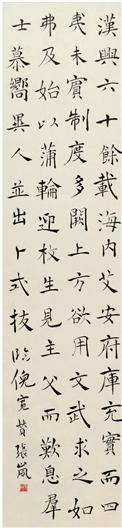 漢興六十餘載海内艾安府庫充實而四
夷未賓制度多闕上方欲用文武求之如
弗及始以蒲輪迎枚生見主父而歎息羣
士慕嚮異人並出卜式拔 臨倪寬贊 張嵐